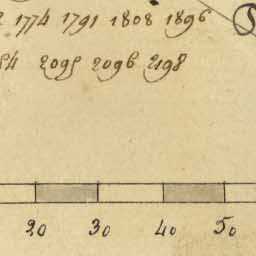 1774 1791 1808 1896
2095 2096 2198
20 30 40 50